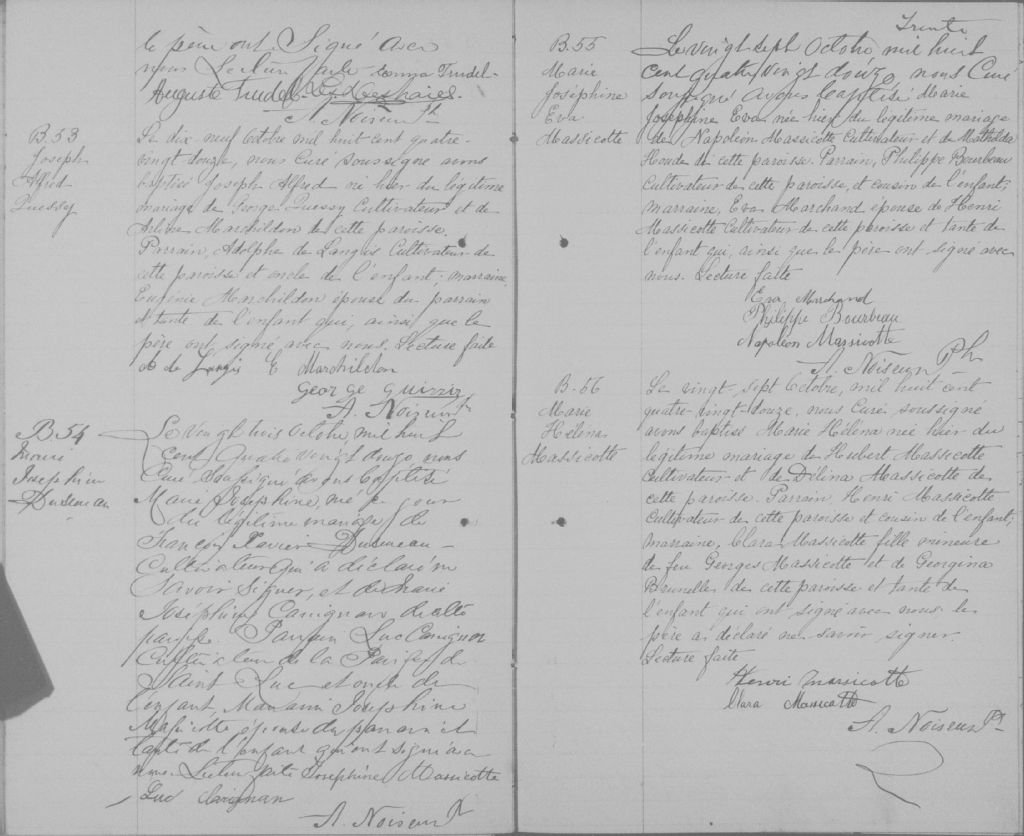 le père ont Signé avec
nous Lecture faite Emma Trudel
Auguste Trudel
A. Noiseux Ptr
B.53
Joseph
Alfred
Quessy
Le dix-neuf Octobre mil huit cent quatre-
vingt-douze, nous Curé soussigné avons
baptisé Joseph Alfred né hier du légitime
mariage de George Quessy Cultivateur et de
Marchildon de cette paroisse.
Parrain, Adolphe de Langis Cultivateur de
cette paroisse et oncle de l'enfant; marraine,
Eugénie Marchildon épouse du parrain
et tante de l'enfant qui, ainsi que le
père ont signé avec nous. Lecture faite
A de Langis E Marchildon
George
A. Noiseux Ptr
B.54
Marie
Josephine
Le vingt trois Octobre mil huit
cent quatre vingt douze nous
Curé soussigné avons baptisé
Marie Josephine, née ce jour
du légitime mariage de
François Xavier
Cultivateur qui a déclaré ne
savoir signer, et de Marie
Joséphine Carignan de cette
paroisse. Parrain Luc Carignan
Cultivateur de la Paroisse de
Saint Luc et oncle de
l'enfant, Marraine Josephine
Massicotte épouse du parrain et
tante de l'enfant qui ont signé avec
nous Lecture faite Josephine Massicotte
Luc Carignan
A. Noiseux Ptr
Trente
B.55
Marie
Joséphine
Eva
Massicotte
Le vingt sept Octobre mil huit
cent quatre vingt douze, nous Curé
soussigné avons baptisé Marie
Josephine Eva née hier du légitime mariage
de Napoléon Massicotte Cultivateur et de Mathilda
Houde de cette paroisse. Parrain, Philippe Bourbeau
Cultivateur de cette paroisse, et cousin de l'enfant;
marraine, Eva Marchand épouse de Henri
Massicotte Cultivateur de cette paroisse et tante de
l'enfant qui, ainsi que le père ont signé avec
nous. Lecture faite
Eva Marchand
Philippe Bourbeau
Napoléon Massicotte
A. Noiseux Ptr
B-56
Marie
Hélèna
Massicotte
Le vingt-sept Octobre, mil huit-cent
quatre-vingt-douze, nous Curé, soussigné
avons baptisé Marie Hélèna née hier du
légitime mariage de Hubert Massicotte
Cultivateur et de Délina Massicotte de
cette paroisse. Parrain Henri Massicotte
Cultivateur de cette paroisse et cousin de l'enfant;
marraine, Clara Massicotte fille mineure
de feu Georges Massicotte et de Georgina
Brunelle de cette paroisse et tante de
l'enfant qui ont signé avec nous le
père a déclaré ne savoir signer.
Lecture faite
Henri Massicotte
Clara Massicotte
A. Noiseux Ptr